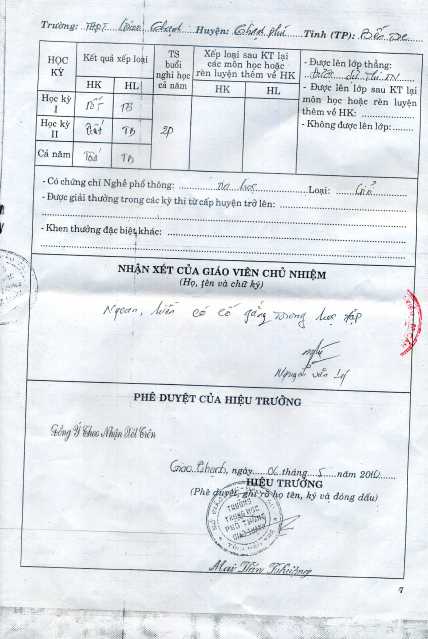 Trường: THPT Giao Thạnh Huyện: Thạnh Phú Tỉnh (TP): Bến Tre
HỌC KỲ
Kết quả xếp loại
TS buổi nghỉ học cả năm
Xếp loại sau KT lại các môn học hoặc rèn luyện thêm về HK
- Được lên lớp thẳng:
HK HL HK HL
- Được lên lớp sau KT lại môn học hoặc rèn luyện thêm về HK:
Học kỳ I Tốt TB
Học kỳ II Tốt TB 2P
- Không được lên lớp:
Cả năm Tốt TB
- Có chứng chỉ Nghề phổ thông: Loại:
- Được giải thưởng trong các kỳ thi từ cấp huyện trở lên:
- Khen thưởng đặc biệt khác:
NHẬN XÉT CỦA GIÁO VIÊN CHỦ NHIỆM
(Họ, tên và chữ ký)
Ngoan, luôn có cố gắng trong học tập
Nguyễn Văn
PHÊ DUYỆT CỦA HIỆU TRƯỞNG
Đồng Ý Theo Nhận Xét Trên
Giao Thạnh, ngày 06 tháng 5 năm 2010
HIỆU TRƯỞNG
(Phê duyệt, ghi rõ họ tên, ký và đóng dấu)
TRƯỜNG
TRUNG HỌC
PHỔ THÔNG
GIAO THẠNH
Mai Văn
7